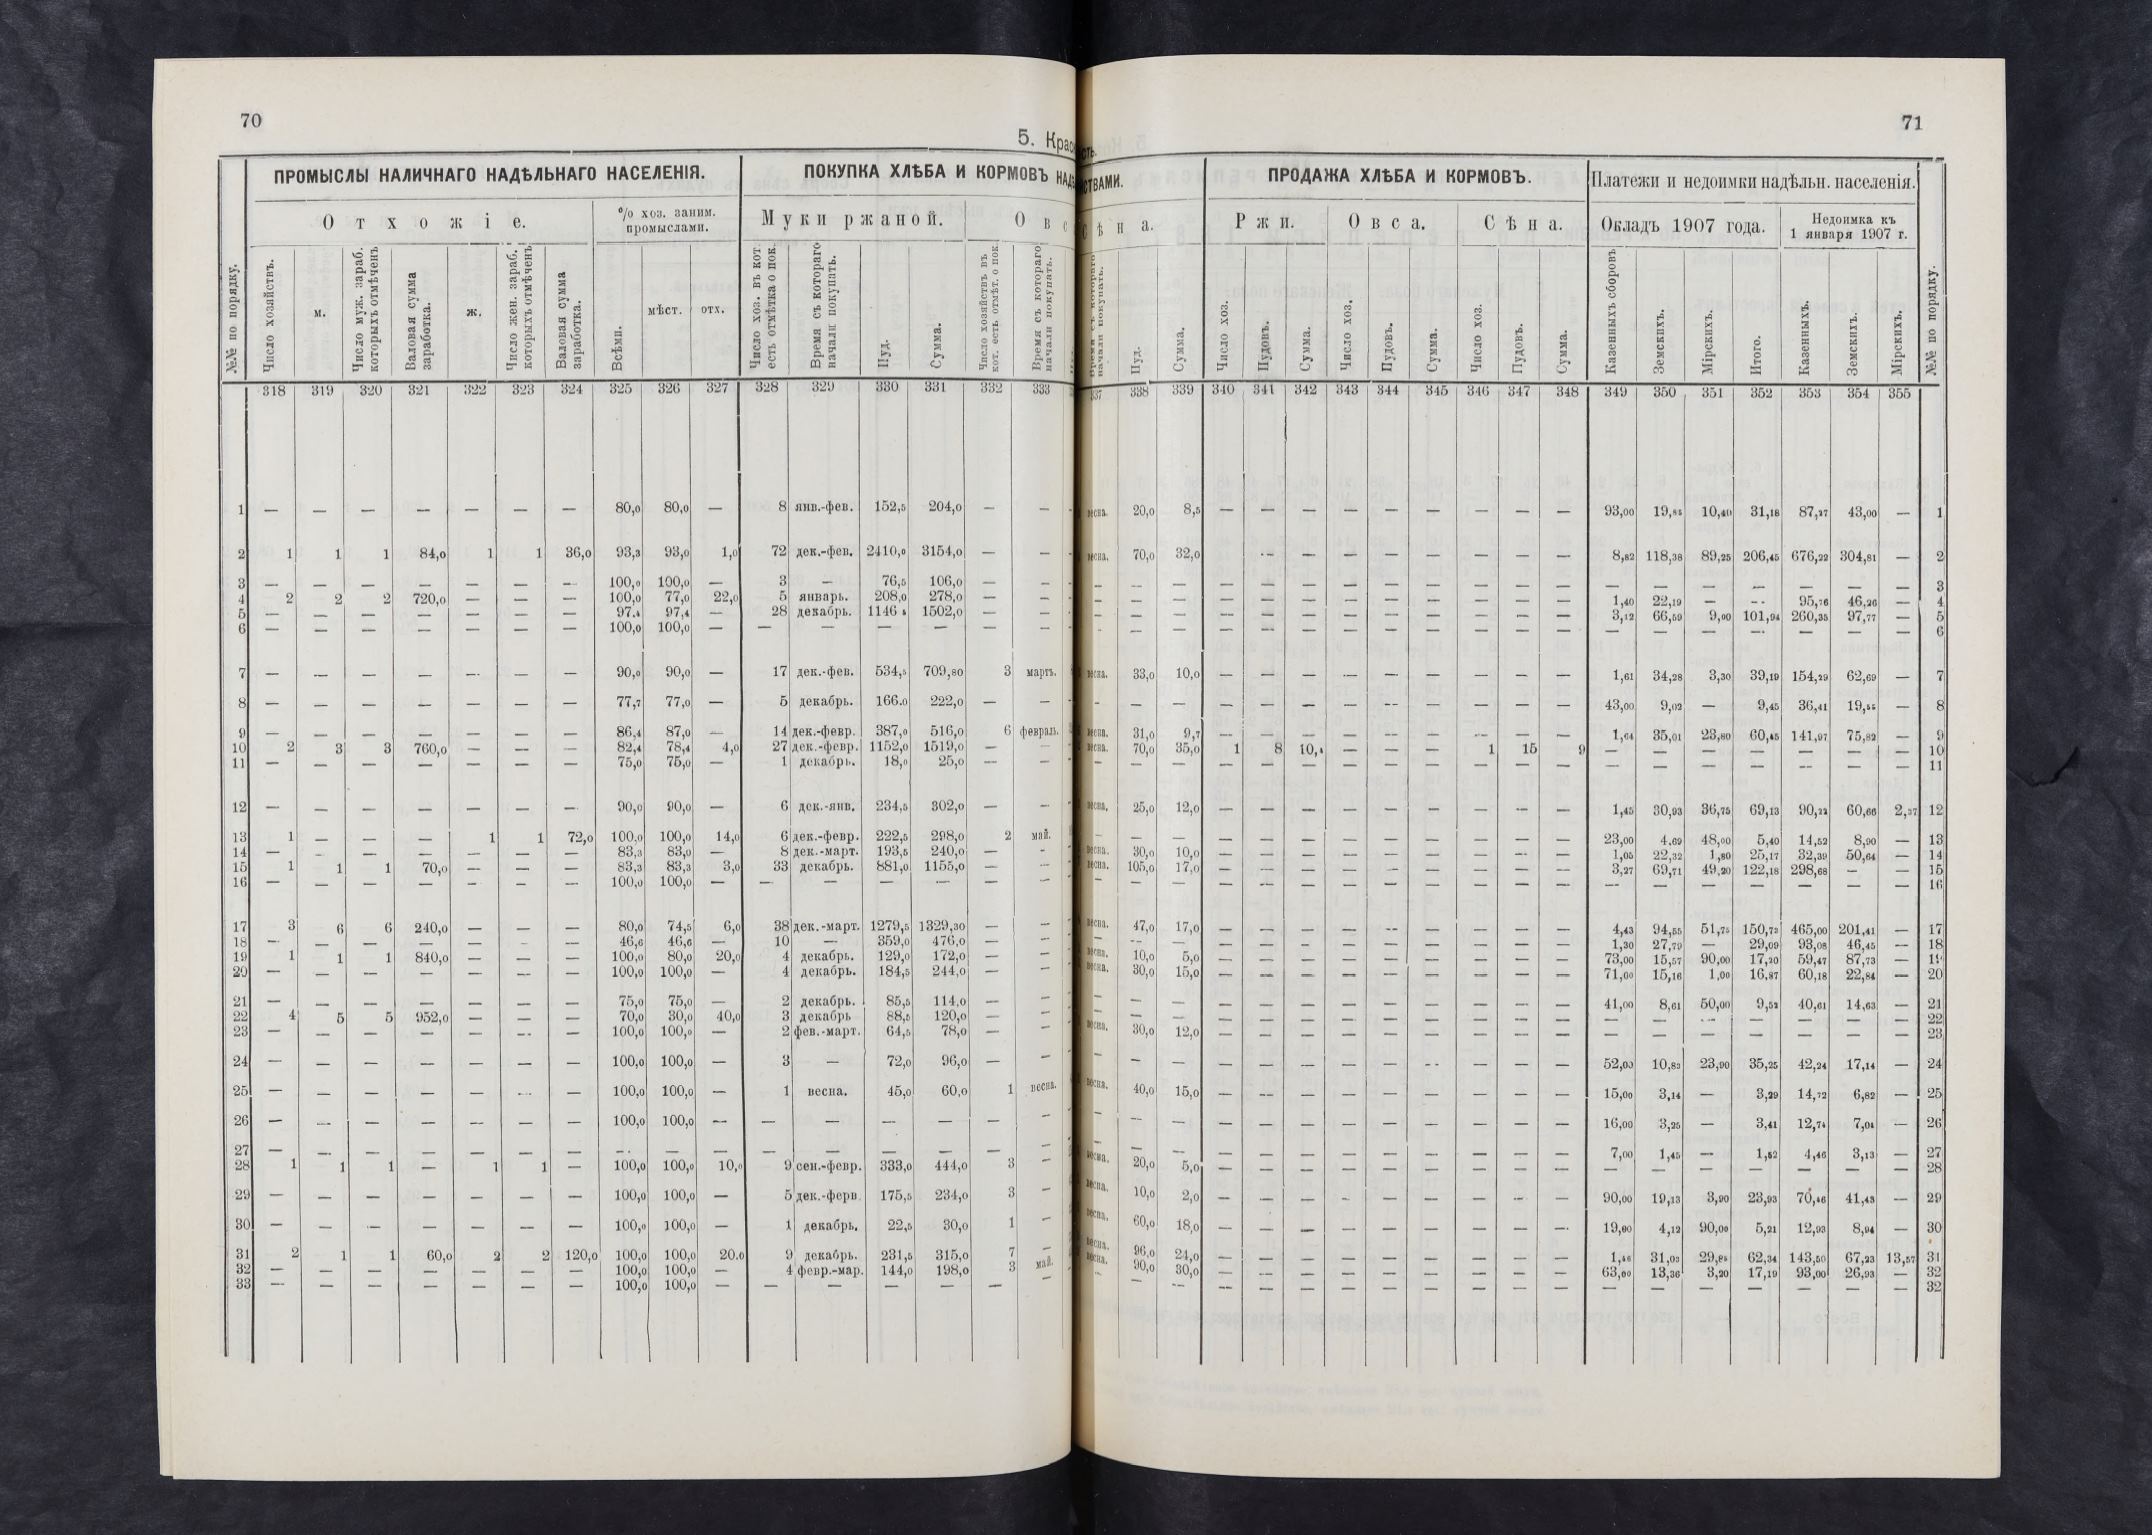 70
5. Крас
ПРОМЫСЛЫ НАЛИЧНАГО НАДѢЛЬНАГО НАСЕЛЕНІЯ. ПОКУПКА ХЛѢБА И КОРМОВЪ
Отхожіе. % хоз. заним. промыслами. Муки ржаной. Овс
№№ по порядку. Число хозяйствъ. м. Число муж. зараб. которыхъ отмѣченъ Валовая сумма заработка. ж. Число жен. зараб. которыхъ отмѣченъ Валовая сумма заработка. Всѣми. мѣст. отх. Число хоз. въ кот. есть отмѣтка о пок. Время съ котораго начали покупать. Пуд. Сумма. Число хозяйствъ въ кот. есть отмѣт. о пок. Время съ котораго начали покупать.
318 319 320 321 322 323 324 325 326 327 328 329 330 331 332 333
1 — — — — — — — 80,0 80,0 — 8 янв.-фев. 152,5 204,0 — —
2 1 1 1 84,0 1 1 36,0 93,3 93,0 1,0 72 дек.-фев. 2410,0 3154,0 — —
3 — — — — — — — 100,0 100,0 — 3 — 76,5 106,0 — —
4 2 2 2 720,0 — — — 100,0 77,0 22,0 5 январь. 208,0 278,0 — —
5 — — — — — — — 97,4 97,4 — 28 декабрь. 1146 1502,0 — —
6 — — — — — — — 100,0 100,0 — — — — — — —
7 — — — — — — — 90,0 90,0 — 17 дек.-фев. 534,5 709,80 3 мартъ.
8 — — — — — — — 77,7 77,0 — 5 декабрь. 166.0 222,0 — —
9 — — — — — — — 86,4 87,0 — 14 дек.-февр. 387,0 516,0 6 февраль.
10 2 3 3 760,0 — — — 82,4 78,4 4,0 27 дек.-февр. 1152,0 1519,0 — —
11 — — — — — — — 75,0 75,0 — 1 декабрь. 18,0 25,0 — —
12 — — — — — — — 90,0 90,0 — 6 дек.-янв. 234,5 302,0 — —
13 1 — — — 1 1 72,0 100,0 100,0 14,0 6 дек.-февр. 222,5 298,0 2 май.
14 — — — — — — — 83,3 83,0 — 8 дек.-март. 193,5 240,0 — -
15 1 1 1 70,0 — — — 83,3 83,3 3,0 33 декабрь. 881,0 1155,0 — —
16 — — — — — — — 100,0 100,0 — — — — — — —
17 3 6 6 240,0 — — — 80,0 74,5 6,0 38 дек.-март. 1279,5 1329,30 — —
18 — — — — — — — 46,6 46,6 — 10 — 359,0 476,0 — —
19 1 1 1 840,0 — — — 100,0 80,0 20,0 4 декабрь. 129,0 172,0 — —
20 — — — — — — — 100,0 100,0 — 4 декабрь. 184,5 244,0 — —
21 — — — — — — — 75,0 75,0 — 2 декабрь. 85,5 114,0 — —
22 4 5 5 952,0 — — — 70,0 30,0 40,0 3 декабрь 88,5 120,0 — —
23 — — — — — — — 100,0 100,0 — 2 фев.-март. 64,5 78,0 — —
24 — — — — — — — 100,0 100,0 — 3 — 72,0 96,0 — —
25 — — — — — — — 100,0 100,0 — 1 весна. 45,0 60,0 1 весна.
26 — — — — — — — 100,0 100,0 — — — — — — —
27 — — — — — — — — — — — — — — — —
28 1 1 1 — 1 1 — 100,0 100,0 10,0 9 сен.-февр. 333,0 444,0 3 —
29 — — — — — — — 100,0 100,0 — 5 дек.-ферв 175,5 234,0 3 —
30 — — — — — — — 100,0 100,0 — 1 декабрь. 22,5 30,0 1 —
31 2 1 1 60,0 2 2 120,0 100,0 100,0 20.0 9 декабрь. 231,5 315,0 7 —
32 — — — — — — — 100,0 100,0 — 4 февр.-мар. 144,0 198,0 3 май.
33 — — — — — — — 100,0 100,0 — — — — — — —
71
ость.
СТВАМИ. ПРОДАЖА ХЛѢБА И КОРМОВЪ. Платежи и недоимки надѣльн. населенія.
Сѣна. Ржи. Овса. Сѣна. Окладъ 1907 года. Недоимка къ 1 января 1907 г.
Время съ котораго начали покупать. Пуд. Сумма. Число хоз. Пудовъ. Сумма. Число хоз. Пудовъ. Сумма. Число хоз. Пудовъ. Сумма. Казенныхъ сборовъ Земскихъ. Мірскихъ. Итого. Казенныхъ. Земскихъ. Мірскихъ. №№ по порядку.
337 338 339 340 341 342 343 344 345 346 347 348 349 350 351 352 353 354 355
весна. 20,0 8,5 — — — — — — — — — 93,00 19,85 10,40 31,18 87,27 43,00 — 1
весна. 70,0 32,0 — — — — — — — — 8,82 118,38 89,25 206,45 676,22 304,81 — 2
— — — — — — — — — — — — — — — — — — — 3
— — — — — — — — — — — — 1,40 22,19 — — 95,76 46,26 — 4
— — — — — — — — — — — — 3,12 66,59 9,00 101,94 260,35 97,77 — 5
— — — — — — — — — — — — — — — — — — — 6
весна. 33,0 10,0 — — — — — — — — — 1,61 34,28 3,30 39,19 154,29 62,69 — 7
— — — — — — — — — — — — 43,00 9,02 — 9,45 36,41 19,55 — 8
весна. 31,0 9,7 — — — — — — — — — 1,64 35,01 23,80 60,45 141,97 75,82 — 9
весна. 70,0 35,0 1 8 10,4 — — — 1 15 9 — — — — — — — 10
— — — — — — — — — — — — — — — — — — — 11
весна. 25,0 12,0 — — — — — — — — — 1,45 30,93 36,75 69,13 90,22 60,66 2,37 12
— — — — — — — — — — — — 23,00 4,69 48,00 5,40 14,52 8,90 — 13
весна. 30,0 10,0 — — — — — — — — — 1,05 22,32 1,80 25,17 32,39 50,64 — 14
весна. 105,0 17,0 — — — — — — — — — 3,27 69,71 49,20 122,18 298,68 — — 15
— — — — — — — — — — — — — — — — — — — 16
весна. 47,0 17,0 — — — — — — — — — 4,43 94,55 51,75 150,73 465,00 201,41 — 17
— — — — — — — — — — — — 1,30 27,79 — 29,09 93,08 46,45 — 18
весна. 10,0 5,0 — — — — — — — — — 73,00 15,57 90,00 17,20 59,47 87,73 — 19
весна. 30,0 15,0 — — — — — — — — — 71,00 15,16 1,00 16,87 60,18 22,84 — 20
— — — — — — — — — — — — 41,00 8,61 50,00 9,52 40,61 14,63 — 21
— — — — — — — — — — — — — — — — — — — 22
весна. 30,0 12,0 — — — — — — — — — — — — — — — — 23
— — — — — — — — — — — — 52,00 10,83 23,00 35,25 42,24 17,14 — 24
весна. 40,0 15,0 — — — — — — — — — 15,00 3,14 — 3,29 14,72 6,82 — 25
— — — — — — — — — — — — 16,00 3,25 — 3,41 12,74 7,04 — 26
— — — — — — — — — — — — 7,00 1,45 — 1,52 4,46 3,13 — 27
весна. 20,0 5,0 — — — — — — — — — — — — — — — — 28
весна. 10,0 2,0 — — — — — — — — — 90,00 19,13 3,90 23,93 70,46 41,43 — 29
весна. 60,0 18,0 — — — — — — — — — 19,00 4,12 90,00 5,21 12,93 8,94 — 30
весна. 96,0 24,0 — — — — — — — — — 1,46 31,03 29,85 62,34 143,50 67,23 13,57 31
весна. 90,0 30,0 — — — — — — — — — 63,00 13,36 3,20 17,19 93,00 26,93 — 32
— — — — — — — — — — — — — — — — — — — 32